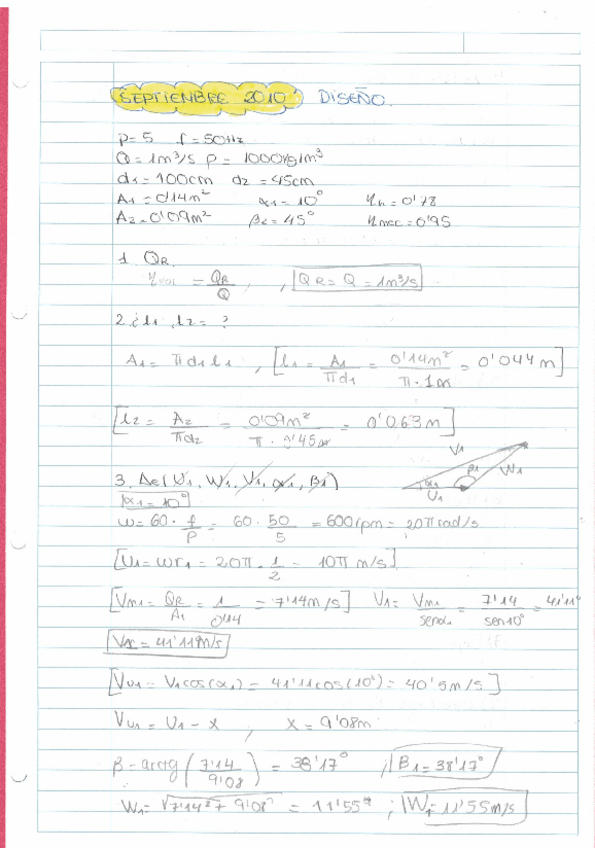 SEPTIEMBRE 2010 DISEÑO.
p=5 f=50Hz
Q=1m³/s ρ= 1000kg/m³
d1=100cm d2=45cm
A1=0'14m² α1=10° ηh=0'78
A2=0'09m² β2=45° ηmec=0'95
1. QR
ηvol = QR/Q , , QR=Q=1m³/s
2. ¿l1, l2= ?
A1= πd1l1 , [l1= A1/πd1 = 0'14m²/π·1m = 0'044m]
[l2= A2/πd2 = 0'09m²/π·0'45m = 0'063m]
V1
β1 W1
α1
U1
3. Δe(U1, W1, V1, α1, β1)
α1=10°
ω=60·f/p = 60·50/5 =600rpm= 20π rad/s
[U1=ωr1=20π·1/2= 10π m/s]
[Vm1= QR/A1 = 1/0'14 =7'14m/s] V1= Vm1/senα1 = 7'14/sen10° =41'11
V1=41'11m/s
[Vu1=V1cos(α1)=41'11cos(10°)=40'5m/s]
Vu1=U1-x , x=9'08m
β=arctg(7'14/9'08) = 38'17° ; β1=38'17°
W1=√7'14²+9'08² = 11'55 ; W1=11'55m/s